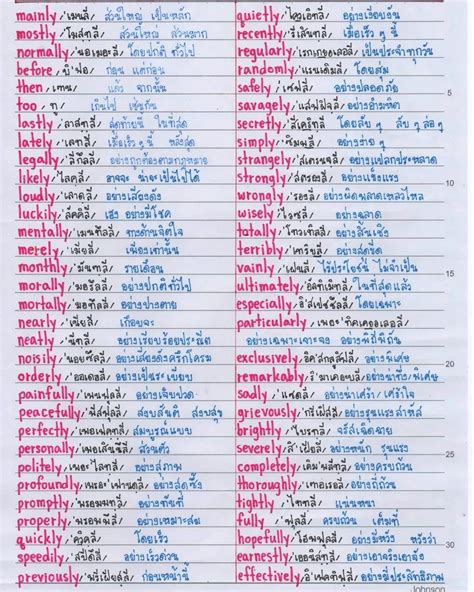 mainly /'เมนลี่/ ส่วนใหญ่ เป็นหลัก
mostly /'โมสทลี่/ ส่วนใหญ่ ส่วนมาก
normally /'นอเมอะลี่/ โดยปกติ ทั่วไป
before /บิ'ฟอ/ ก่อน แต่ก่อน
then /เทน/ แล้ว จากนั้น
too /ทู/ เกินไป เช่นกัน
lastly /'ลาสทลี่/ สุดท้ายนี้ ในที่สุด
lately /'เลทลี่/ เมื่อเร็ว ๆ นี้ หลังสุด
legally /'ลีกัลลี่/ อย่างถูกต้องตามกฎหมาย
likely /'ไลคลี่/ อาจจะ น่าจะเป็นไปได้
loudly /'เลาดลี่/ อย่างเสียงดัง
luckily /'ลัคคิลี่/ เฮง อย่างมีโชค
mentally /'เมนทัลลี่/ ทางด้านจิตใจ
merely /'เมียลี่/ เพียงเท่านั้น
monthly /'มันทลี่/ รายเดือน
morally /'มอรัลลี่/ อย่างปกติทั่วไป
mortally /'มอทัลลี่/ อย่างปางตาย
nearly /'เนียลี่/ เกือบจะ
neatly /'นีทลี่/ อย่างเรียบร้อยประณีต
noisily /'นอยซิลี่/ อย่างเสียงดังครึกโครม
orderly /'ออเดอลี่/ อย่างเป็นระเบียบ
painfully /'เพนฟุลลี่/ อย่างเจ็บปวด
peacefully /'พีสฟุลลี่/ สงบสันติ สงบสุข
perfectly /'เพอเฟคทลี่/ สมบูรณ์แบบ
personally /'เพอเซินนัลลี่/ ส่วนตัว
politely /เพอะ'ไลทลี่/ อย่างสุภาพ
profoundly /พระ'เฟาน์ดลี่/ อย่างสุดซึ้ง
promptly /'พรอมพทลี่/ อย่างทันที
properly /'พรอพเพอลี่/ อย่างเหมาะสม
quickly /'ควิคลี่/ โดยเร็ว
speedily /'สปีดิลี่/ อย่างเร็วด่วน
previously /'พรีเวียสลี่/ ก่อนหน้านี้
quietly /'ไควเอ็ทลี่/ อย่างเงียบงัน
recently /'รีเสินทลี่/ เมื่อเร็ว ๆ นี้
regularly /'เรกเกอเลอลี่/ เป็นประจำทุกวัน
randomly /'แรนเดิมลี่/ โดยสุ่ม
safely /'เซฟลี่/ อย่างปลอดภัย
5
savagely /'แสฟวิจลี่/ อย่างอำมหิต
secretly /'สีเคร็ทลี่/ โดยลับ ๆ ลับ ๆ ล่อ ๆ
simply /'ซิมพลี่/ อย่างง่าย ๆ
strangely /'สเตรนจลี่/ อย่างแปลกประหลาด
strongly /'สตรองลี่/ อย่างแข็งแรง
10
wrongly /'รองลี่/ อย่างผิดพลาดเหลวไหล
wisely /'ไวซลี่/ อย่างฉลาด
totally /'โทวเทิลลี่/ อย่างสิ้นเชิง
terribly /'เทริบลี่/ อย่างสุดขีด
vainly /'เวนลี่/ ไร้ประโยชน์ ไม่จำเป็น
15
ultimately /'อัลทิเม็ทลี่/ ในที่สุดแล้ว
especially /อิ'สเปชเชิลลี่/ โดยเฉพาะ
particularly /เพอะ'ทิคเคอเลอลี่/
อย่างเฉพาะเจาะจง อย่างพิถีพิถัน
exclusively /อิค'สกลูสิฟลี่/ อย่างพิเศษ
20
remarkably /ริ'มาเคอบลี่/ อย่างน่าทึ่ง/พิเศษ
sadly /'แซดลี่/ อย่างน่าเศร้า เศร้าใจ
grievously /'กรีเวิสลี่/ อย่างรุนแรงสาหัส
brightly /'ไบรทลี่/ จรัสเฉิดฉาย
severely /สิ'เวียลี่/ อย่างหนัก รุนแรง
25
completely /เคิม'พลีทลี่/ อย่างครบถ้วน
thoroughly /'เทอเรอลี่/ อย่างถี่ถ้วน
tightly /'ไททลี่/ แน่นหนา
fully /'ฟูลลี่/ ครบถ้วน เต็มที่
hopefully /'โฮพฟุลลี่/ อย่างมีหวัง หวังว่า
30
earnestly /'เออนิสทลี่/ อย่างเอาจริงเอาจัง
effectively /อิ'เฟคทิฟลี่/ อย่างมีประสิทธิภาพ
Johnson